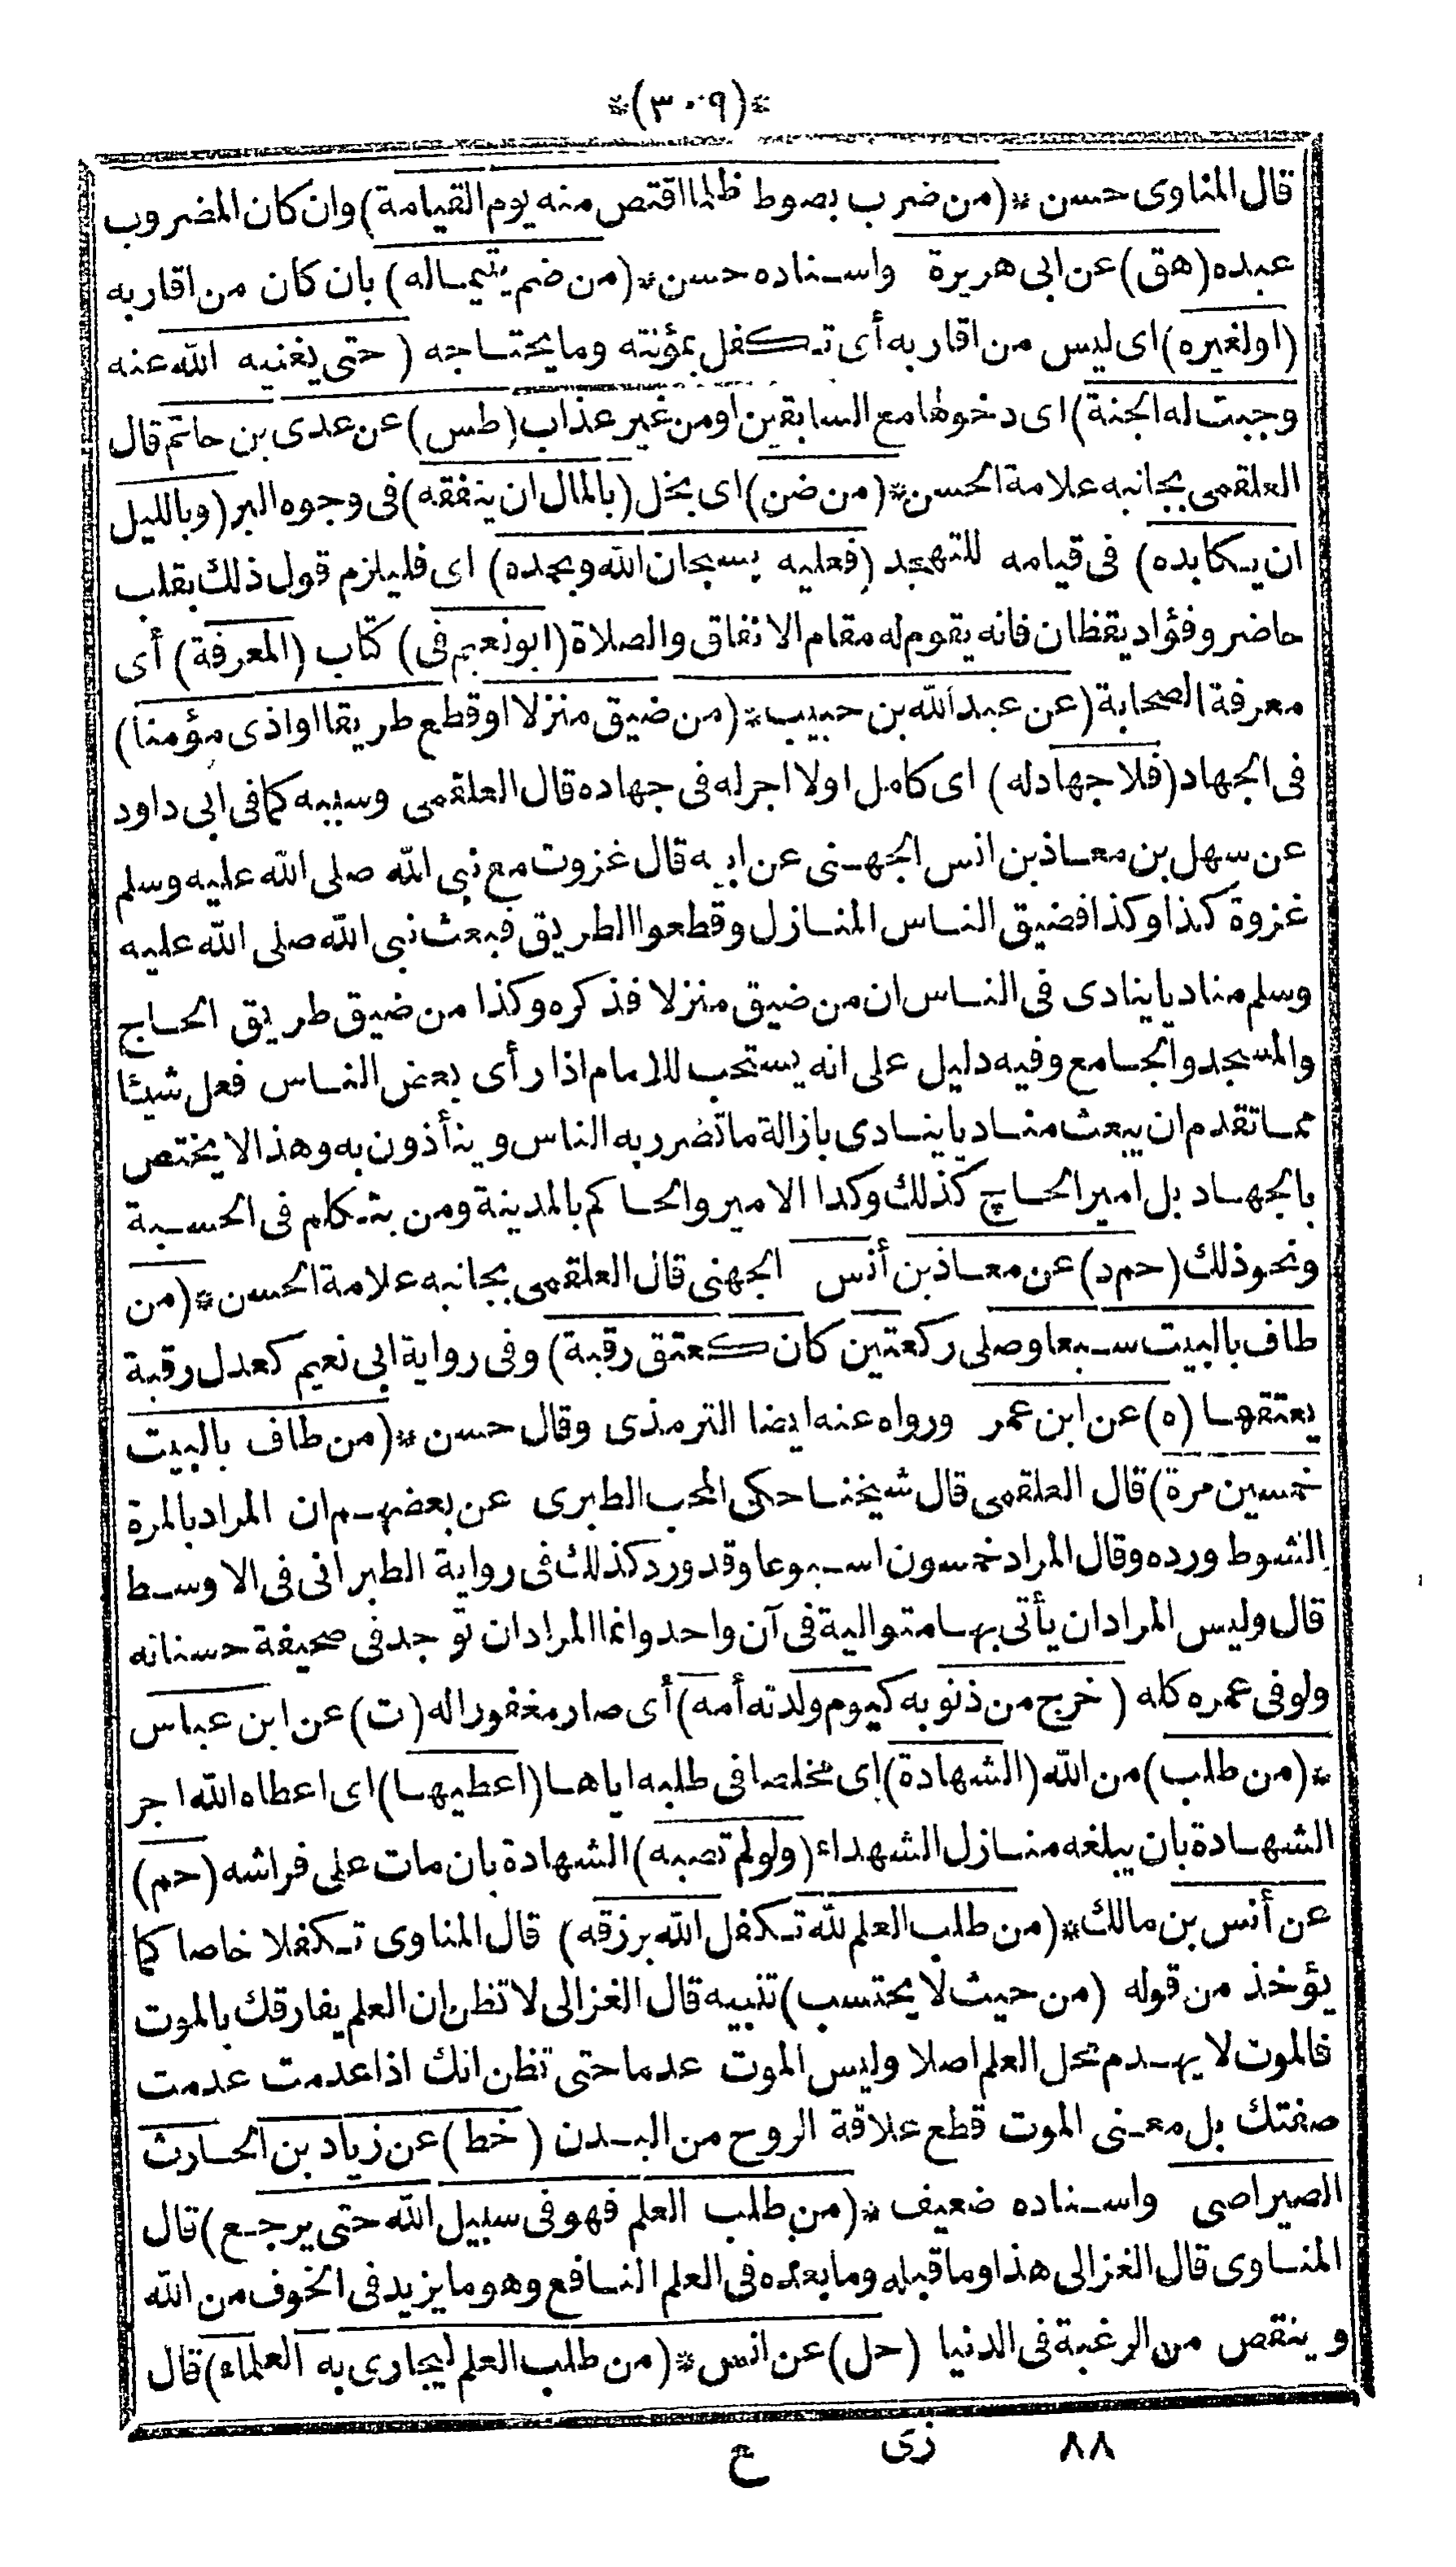 *(٣٠٩)*
قال المناوى حسن *(من ضرب بصوط ظلما اقتص منه يوم القيامة) وان كان المضروب
عبده (هق) عن ابى هريرة واسناده حسن *(من ضم يتيما له) بان كان من اقاربه
(اولغيره) اى ليس من اقاربه أى تكفل بمؤنته وما يحتاجه (حتى يغنيه الله عنه
وجبت له الجنة) اى دخولها مع السابقين اومن غير عذاب (طس) عن عدى بن حاتم قال
العلقمى بجانبه علامة الحسن *(من ضن) اى بخل (بالمال ان ينفقه) فى وجوه البر (وبالليل
ان يكابده) فى قيامه للتهجد (فعليه بسبحان الله وبحمده) اى فليلزم قول ذلك بقلب
حاضر وفؤاد يقظان فانه يقوم له مقام الانفاق والصلاة (ابونعيم فى) كتاب (المعرفة) أى
معرفة الصحابة (عن عبد الله بن حبيب *(من ضيق منزلا اوقطع طريقا اواذى مؤمنا)
فى الجهاد (فلا جهاد له) اى كامل اولا اجر له فى جهاده قال العلقمى وسببه كما فى ابى داود
عن سهل بن معاذ بن انس الجهنى عن ابيه قال غزوت مع نبى الله صلى الله عليه وسلم
غزوة كذا وكذا فضيق الناس المنازل وقطعوا الطريق فبعث نبى الله صلى الله عليه
وسلم مناديا ينادى فى الناس ان من ضيق منزلا فذكره وكذا من ضيق طريق الحاج
والمسجد والجامع وفيه دليل على انه يستحب للامام اذا رأى بعض الناس فعل شيئا
مما تقدم ان يبعث مناديا ينادى بازالة ما تضرر به الناس ويتأذون به وهذا لا يختص
بالجهاد بل امير الحاج كذلك وكدا الامير والحاكم بالمدينة ومن يتكلم فى الحسبة
ونحو ذلك (حم د) عن معاذ بن أنس الجهنى قال العلقمى بجانبه علامة الحسن *(من
طاف بالبيت سبعا وصلى ركعتين كان كعتق رقبة) وفى رواية ابى نعيم كعدل رقبة
يعتقها (ه) عن ابن عمر ورواه عنه ايضا الترمذى وقال حسن *(من طاف بالبيت
خمسين مرة) قال العلقمى قال شيخنا حكى المحب الطبرى عن بعضهم ان المراد بالمرة
الشوط ورده وقال المراد خمسون اسبوعا وقد ورد كذلك فى رواية الطبرانى فى الاوسط
قال وليس المراد ان يأتى بها متوالية فى آن واحد وانما المراد ان توجد فى صحيفة حسناته
ولو فى عمره كله (خرج من ذنوبه كيوم ولدته أمه) أى صار مغفورا له (ت) عن ابن عباس
*(من طلب) من الله (الشهادة) اى مخلصا فى طلبه اياها (اعطيها) اى اعطاه الله اجر
الشهادة بان يبلغه منازل الشهداء (ولو لم تصبه) الشهادة بان مات على فراشه (حم)
عن أنس بن مالك *(من طلب العلم لله تكفل الله برزقه) قال المناوى تكفلا خاصا كما
يؤخذ من قوله (من حيث لا يحتسب) تنبيه قال الغزالى لا تظن ان العلم يفارقك بالموت
فالموت لا يهدم محل العلم اصلا وليس الموت عدما حتى تظن انك اذا عدمت عدمت
صفتك بل معنى الموت قطع علاقة الروح من البدن (خط) عن زياد بن الحارث
الصيراصى واسناده ضعيف *(من طلب العلم فهو فى سبيل الله حتى يرجع) قال
المناوى قال الغزالى هذا وما قبله وما بعده فى العلم النافع وهو ما يزيد فى الخوف من الله
وينقص من الرغبة فى الدنيا (حل) عن انس *(من طلب العلم ليجارى به العلماء) قال
٨٨ زى ح